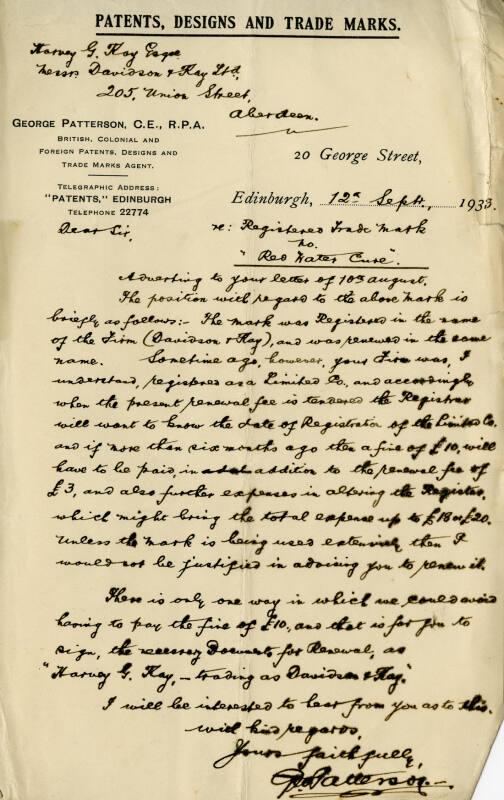 PATENTS, DESIGNS AND TRADE MARKS.
Harvey G. Kay Esqre
Messrs Davidson & Kay Ltd.
205, Union Street,
Aberdeen.
GEORGE PATTERSON, C.E., R.P.A.
BRITISH, COLONIAL AND
FOREIGN PATENTS, DESIGNS AND
TRADE MARKS AGENT.
TELEGRAPHIC ADDRESS:
"PATENTS," EDINBURGH
TELEPHONE 22774
20 George Street,
Edinburgh, 12th Sept., 1933.
Dear Sir,
re: Registered Trade Mark
no.
"Red Water Cure".
Adverting to your letter of 10th August.
The position with regard to the above Mark is
briefly as follows:- The Mark was Registered in the name
of the Firm (Davidson & Kay), and was renewed in the same
name. Sometime ago, however, your Firm was, I
understand, registered as a Limited Co., and accordingly
when the present renewal fee is tendered the Registrar
will want to know the date of Registration of the Limited Co.
and if more than six months ago then a fine of £10, will
have to be paid, in addition to the renewal fee of
£3, and also further expenses in altering the Register,
which might bring the total expense up to £18 or £20.
Unless the Mark is being used extensively then I
would not be justified in advising you to renew it.
There is only one way in which we could avoid
having to pay the fine of £10, and that is for you to
sign, the necessary Documents for Renewal, as
"Harvey G. Kay, – trading as Davidson & Kay."
I will be interested to hear from you as to this.
with kind regards,
Yours faithfully,
Geo Patterson